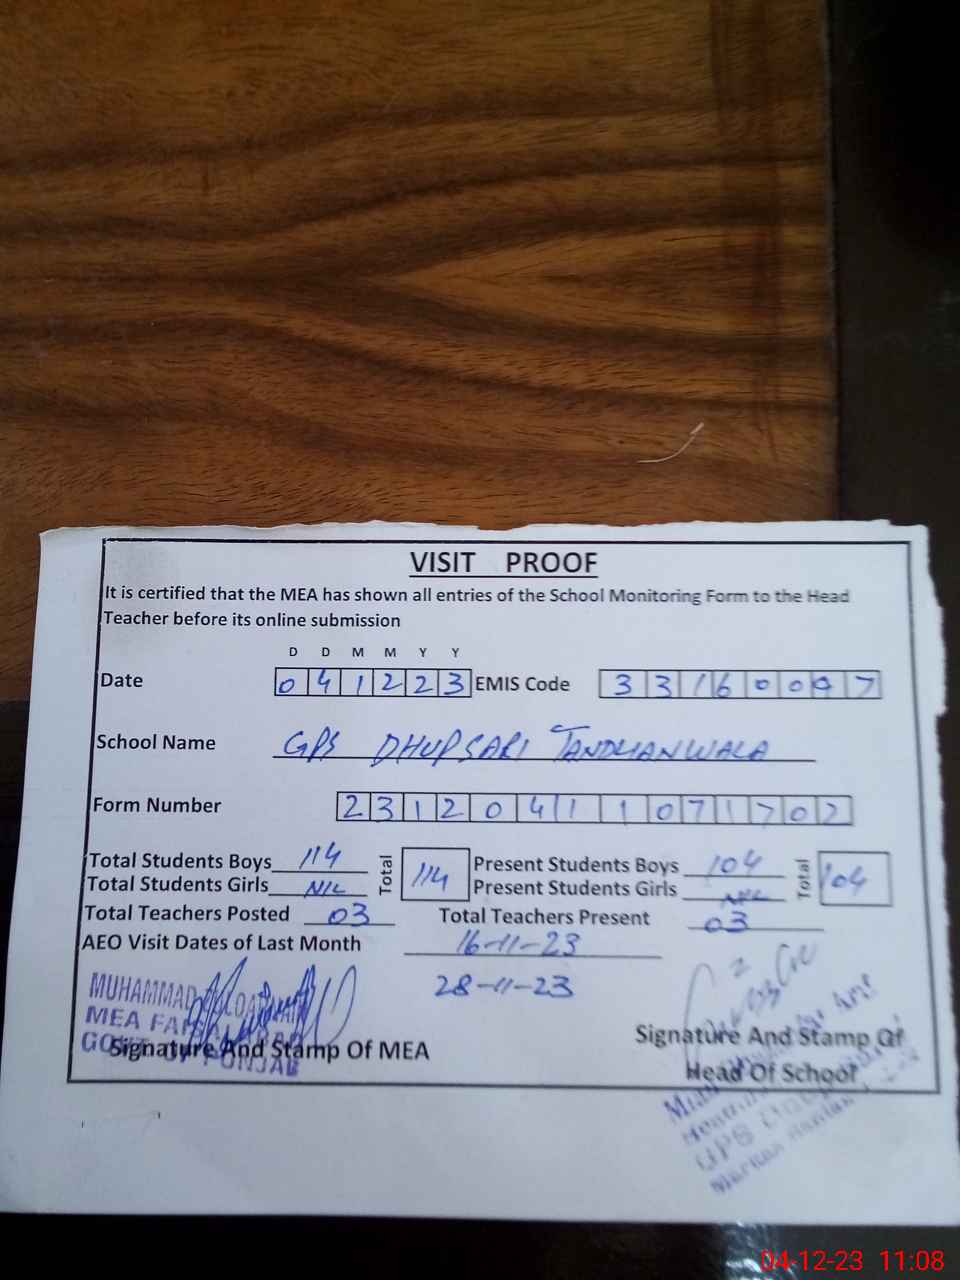 VISIT PROOF
It is certified that the MEA has shown all entries of the School Monitoring Form to the Head
Teacher before its online submission
D D M M Y Y
Date 0 4 1 2 2 3 EMIS Code 3 3 1 6 0 0 9 7
School Name GPS DHUPSARI TANDLIANWALA
Form Number 2 3 1 2 0 4 1 1 0 7 1 7 0 2
Total Students Boys 114 Total 114 Present Students Boys 104 Total 104
Total Students Girls NIL Present Students Girls NIL
Total Teachers Posted 03 Total Teachers Present 03
AEO Visit Dates of Last Month 16-11-23
28-11-23
MUHAMMAD
MEA
Signature And Stamp Of MEA
PUNJAB
Signature And Stamp Of
Head Of School
GPS
Markaz
04-12-23 11:08